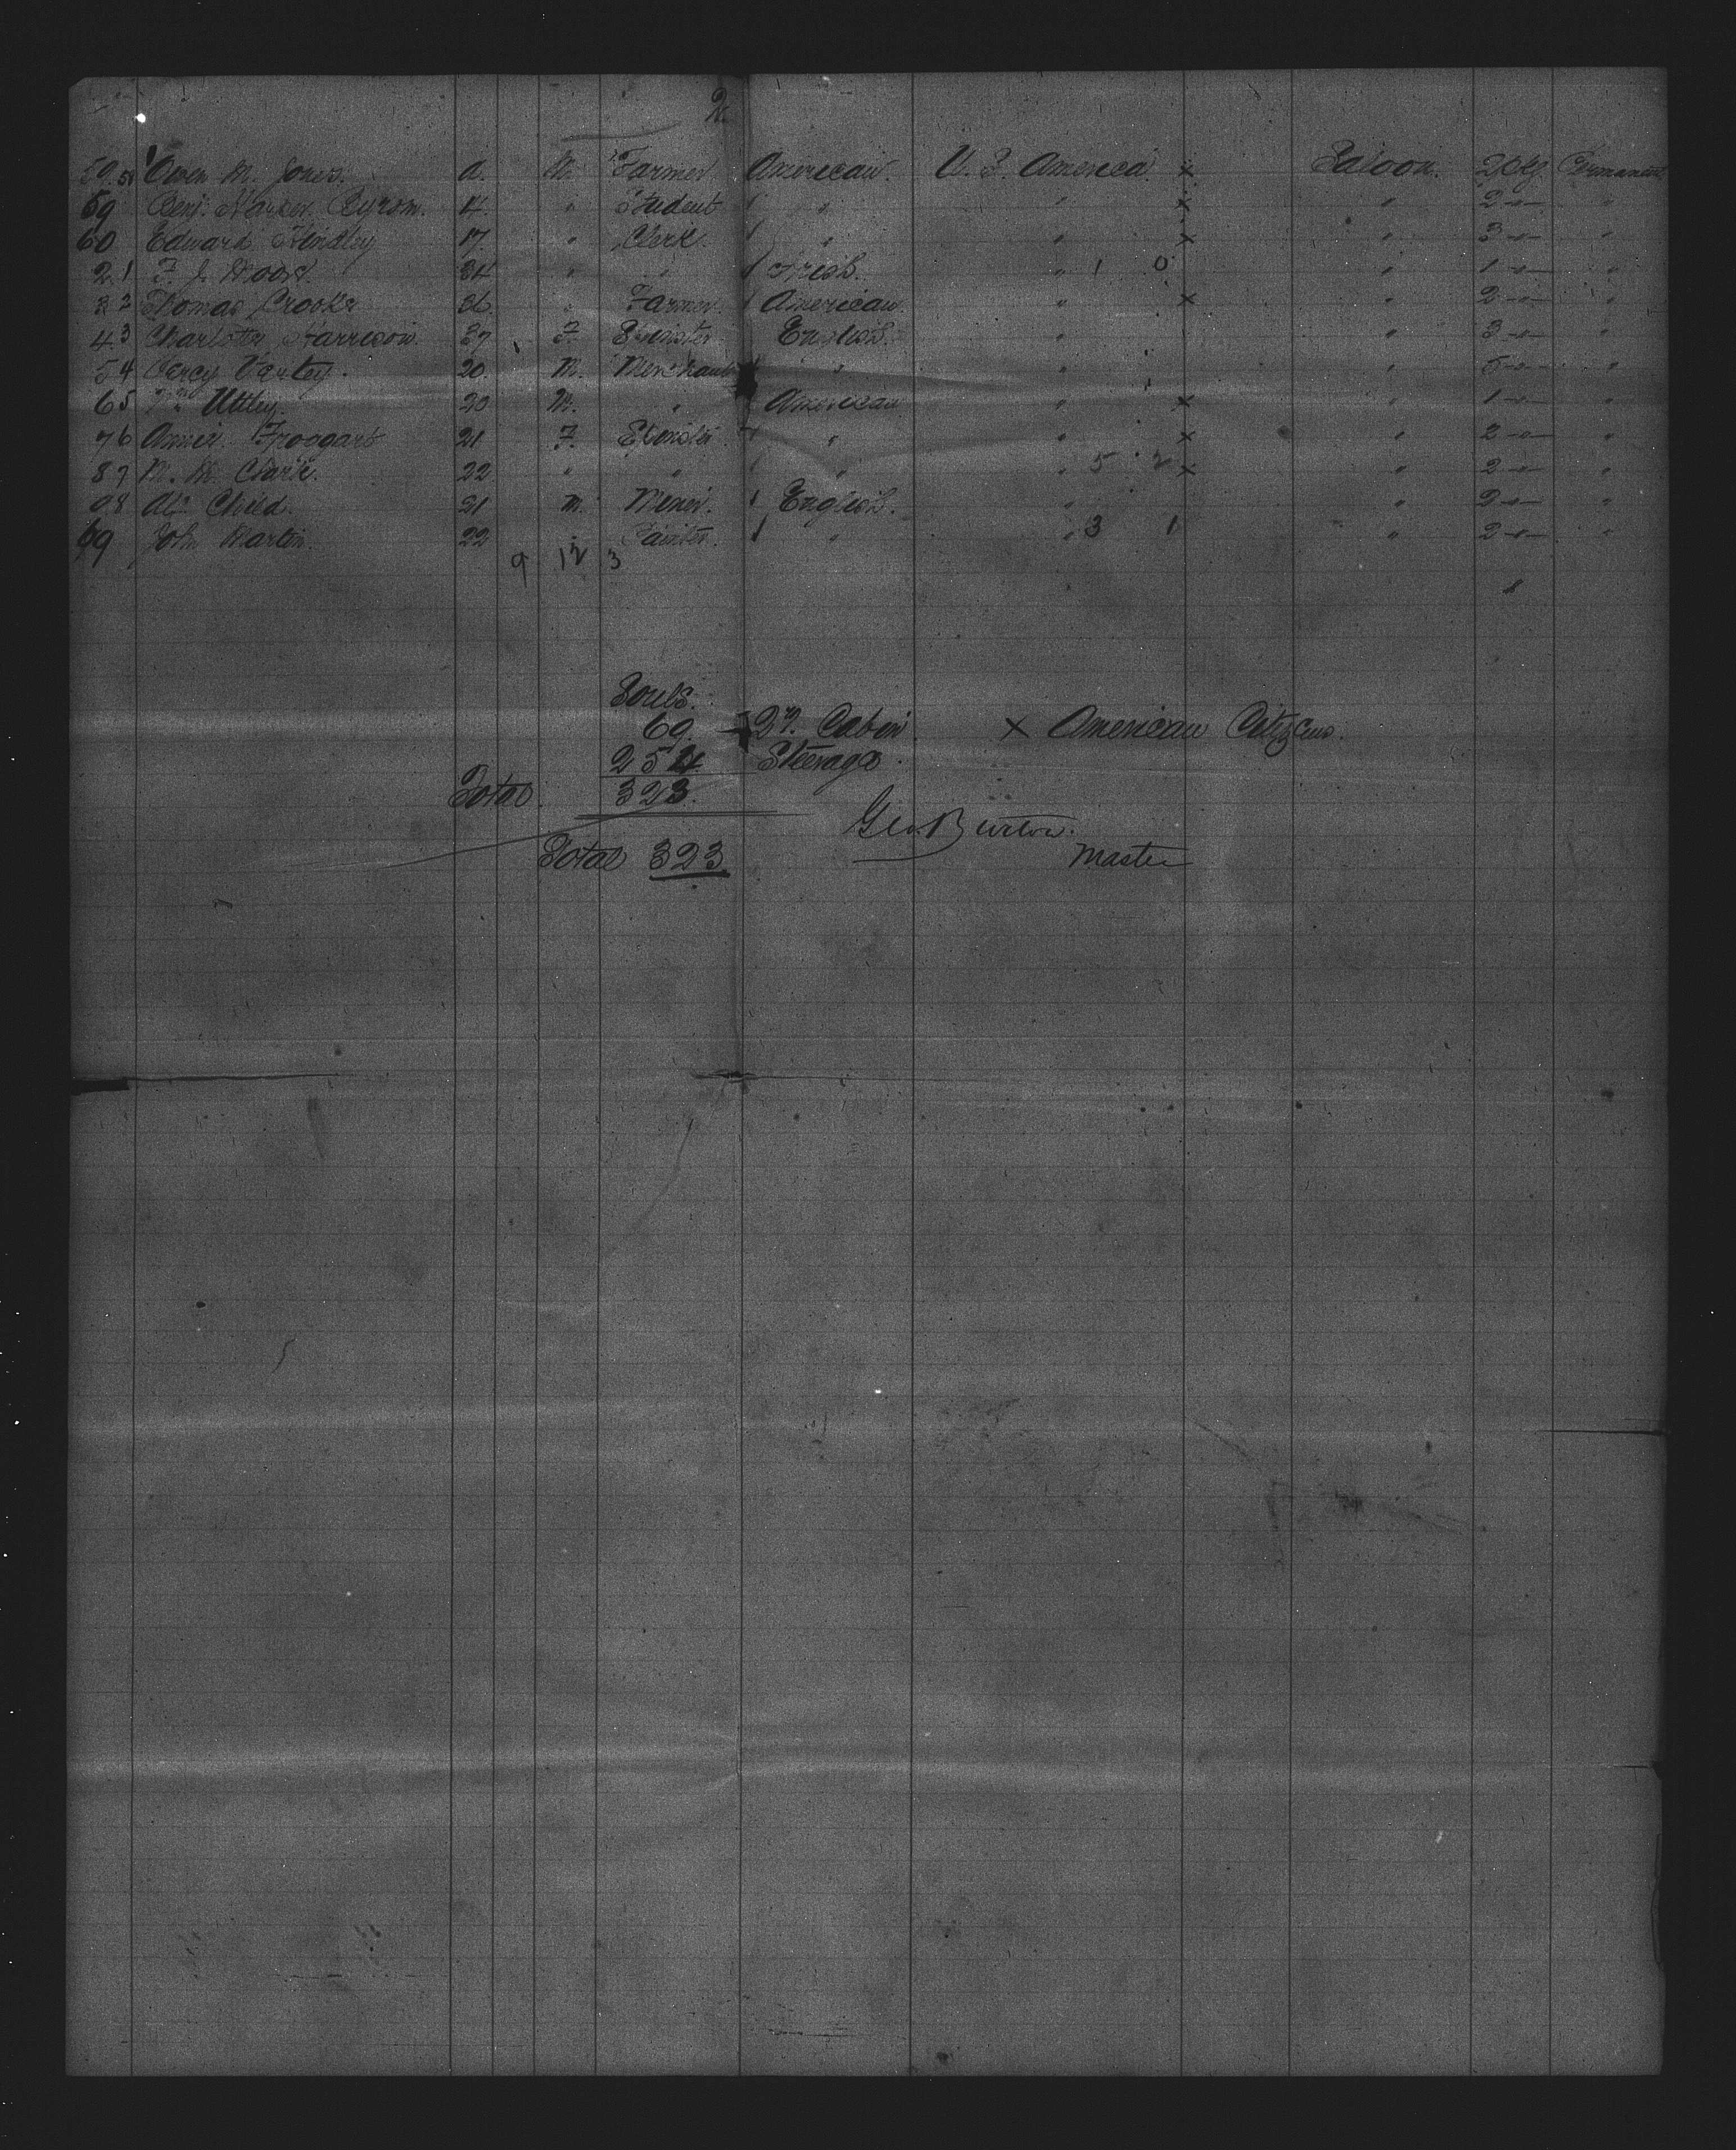 2.
58 Owen M. Jones. a. M. Farmer American. U. S. America × Saloon. 2 Pkg Permanent
59 Benj. Byrom. " Student " " × " 2 -"- "
60 Edward Hindley 17. " Clerk. " " × " 3 -"- "
1 F. J. Wood. 34 " " Irish. " 1 0 " 1 -"- "
2 Thomas Crooks 36. " Farmer. American. " × " 2 -"- "
3 Charlotte Harrison. 37 F. Spinster English. " " 3 -"- "
4 Percy Varley. 20. M. Merchant " " " 5 -"- "
5 Wm Uttley. 20 M. " American " × " 1 -"- "
6 Annie Froggart 21 F. Spinster " " × " 2 -"- "
7 M. M. Clark. 22 " " " " 5 2 × " 2 -"- "
8 Child. 21 M. Miner. English. " " 2 -"- "
69 John Martin. 22 " Painter. " " 3 1 " 2 -"- "
9 12 3
Souls.
69. 2nd. Cabin. × American Citizens.
254 Steerage.
Total 323.
Geo. Burton.
Total 323 Master